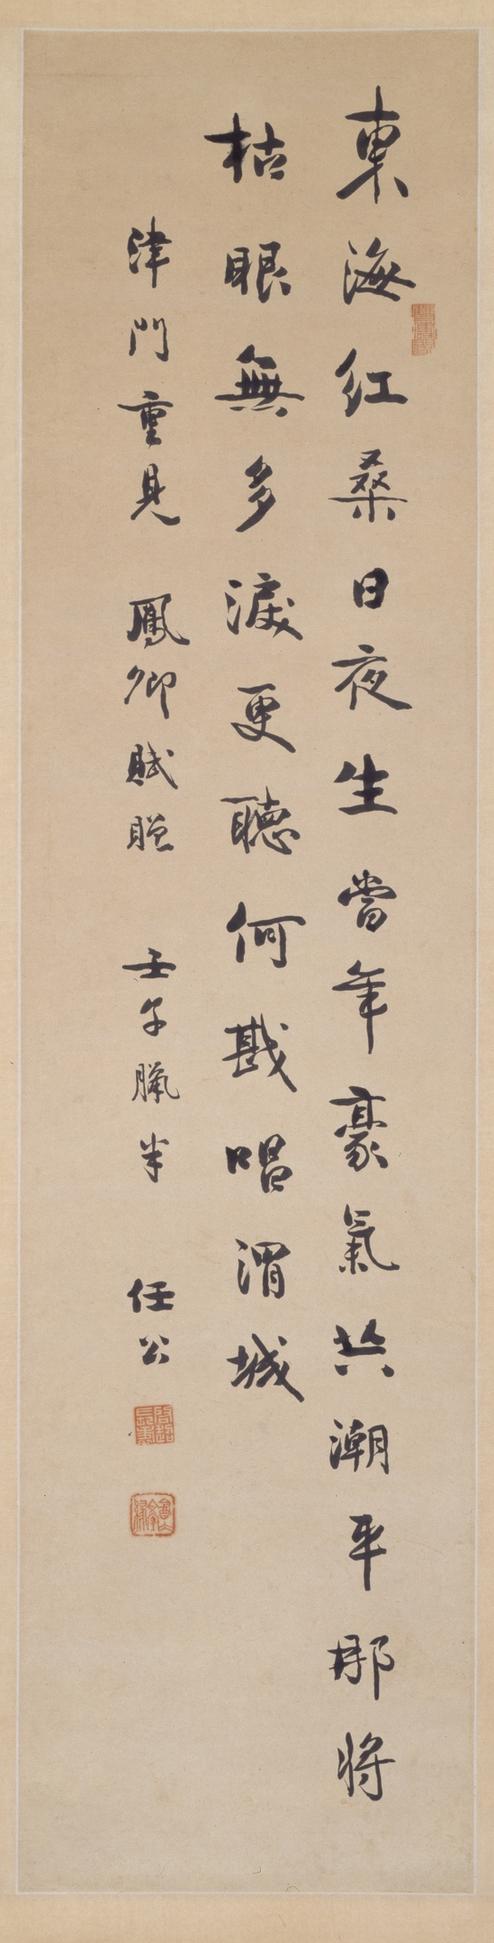 東海紅桑日夜生當年豪氣共潮平那將
枯眼無多淚更聽何戡唱渭城
津門重見　鳳卿賦贈　壬子臘半　任公